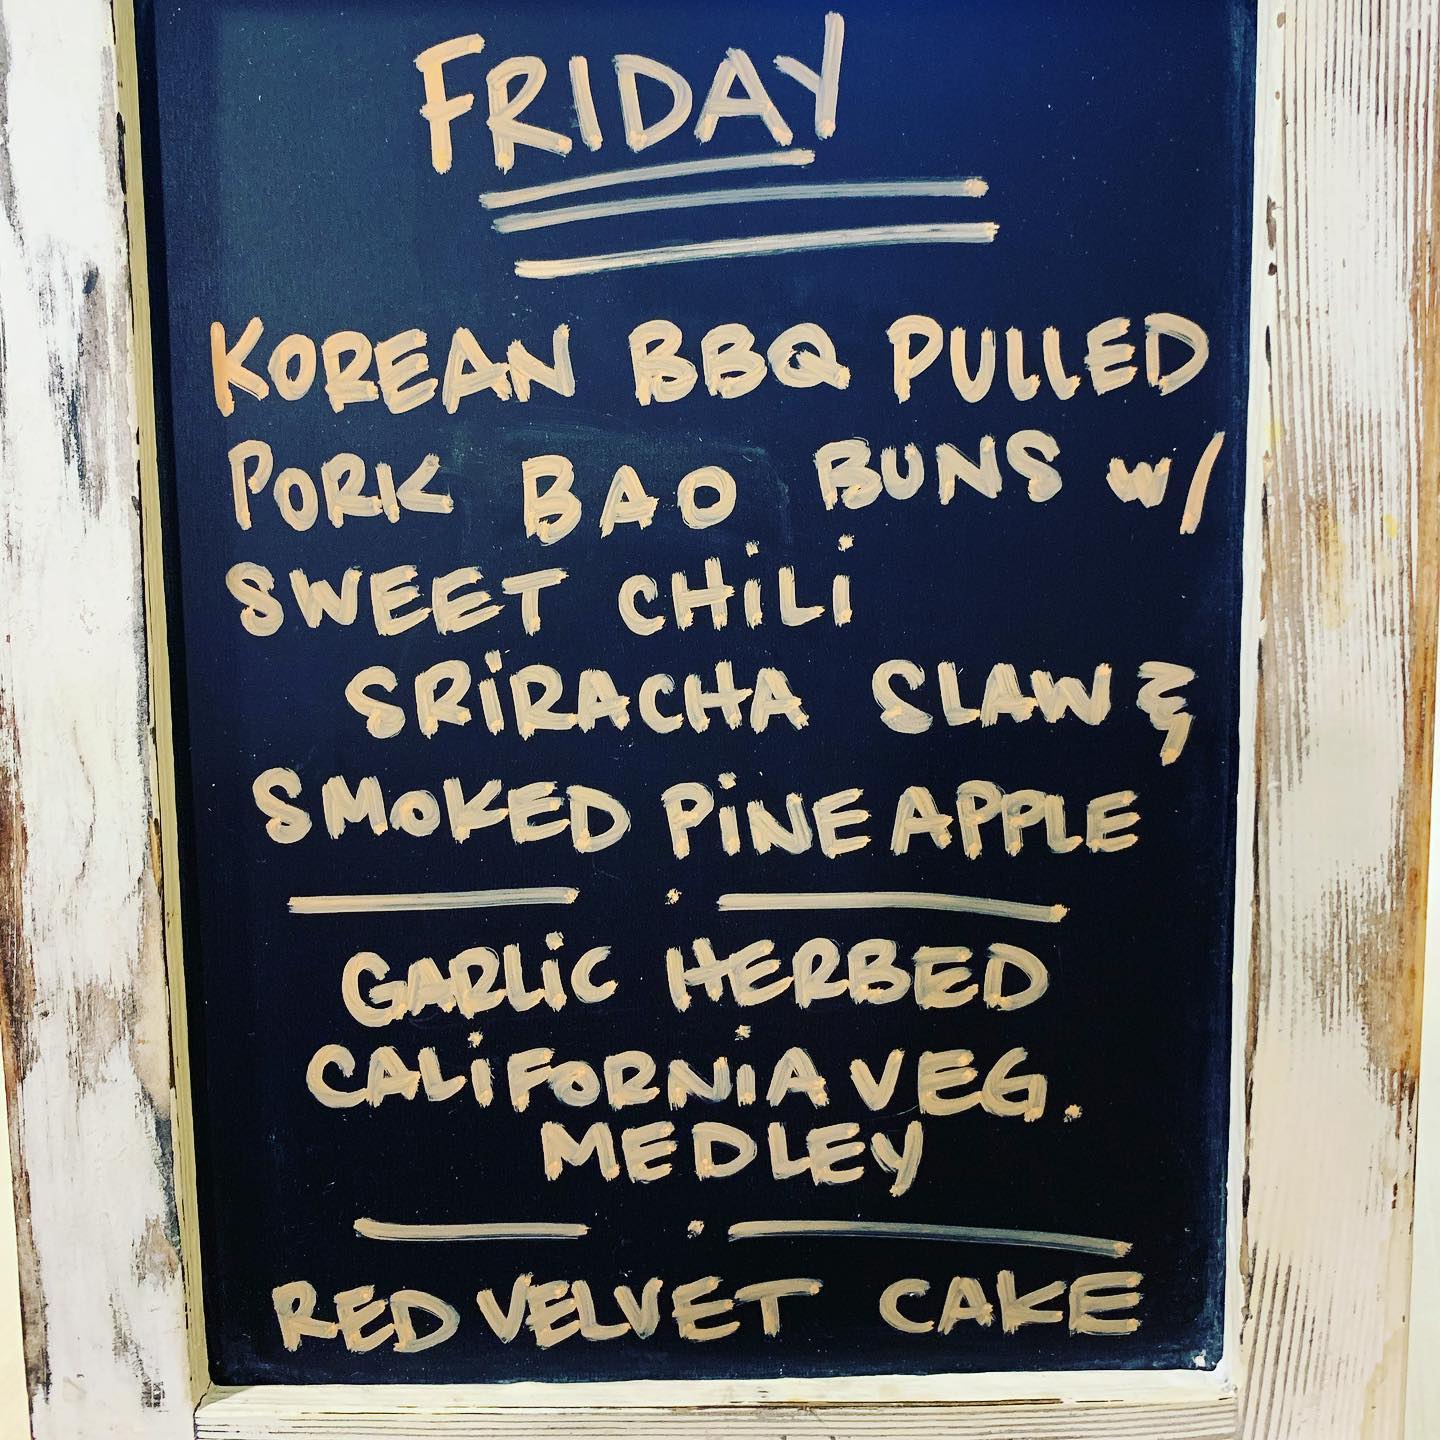 FRIDAY
KOREAN BBQ PULLED
PORK BAO BUNS w/
SWEET CHiLi
SRiRACHA SLAW &
SMOKED PiNEAPPLE
GARLiC HERBED
CALiFORNiA VEG.
MEDLEY
RED VELVET CAKE